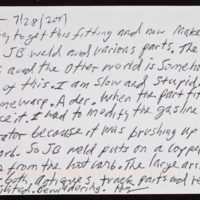 - 7/28/2007
to get this fitting and now make
JB weld and various parts. The
and the other world is somehow
of this. I am slow and stupid.
timewarp. A der. When the part fi
it. I had to modify the gasline
ator because it was brushing up
So JB weld puts on a copper
from the host carb. The large arr
both, antiques, truck parts and te
bewildering.